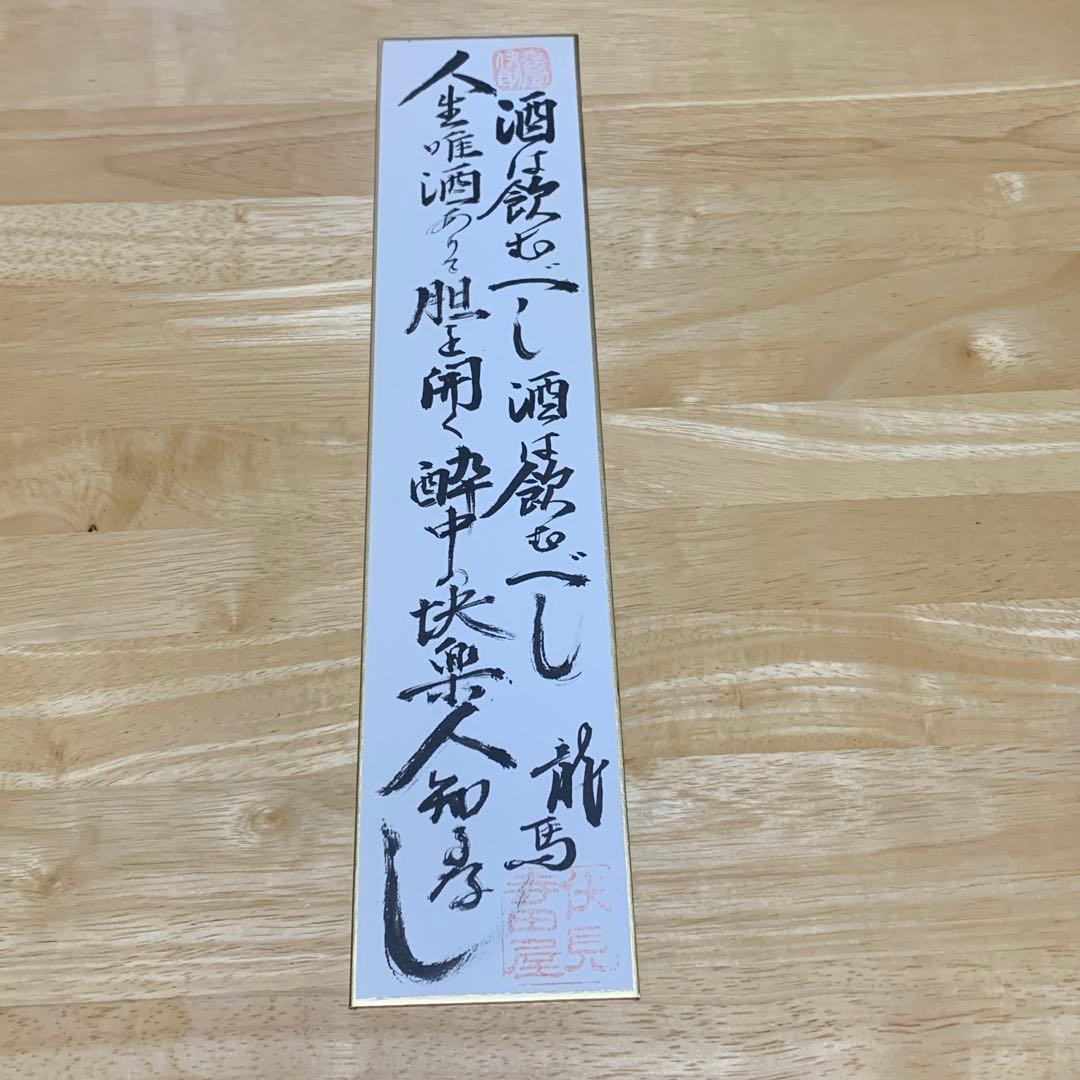 酒は飲むべし酒は飲むべし
人生唯酒ありて胆を開く酔中の快楽人知る存し
龍馬
伏見
寺田屋